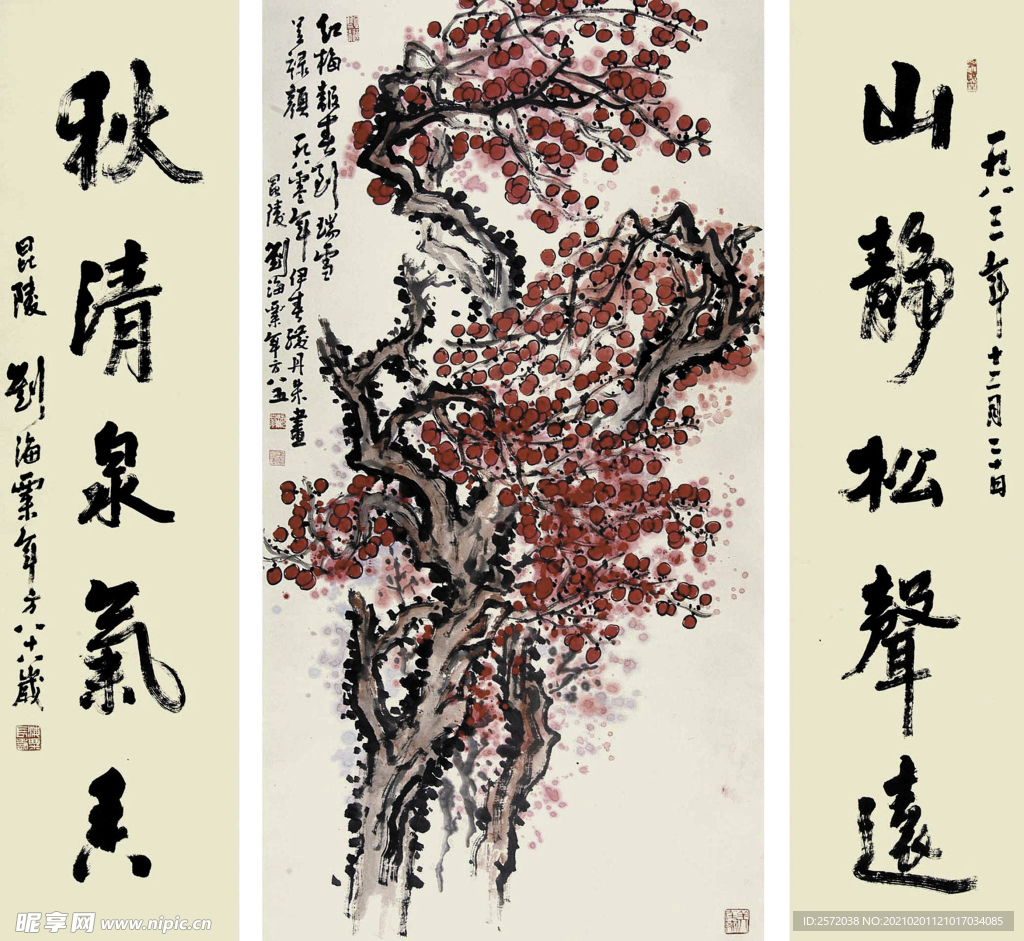 山靜松聲遠
一九八三年十二月二十日
紅梅報春到瑞雪
祿顏 一九八零年伊春 丹朱畫
昆陵劉海粟年方八五
秋清泉氣香
昆陵 劉海粟年方八十八歲
昵享网 www.nipic.cn
ID:2572038 NO:20210201121017034085